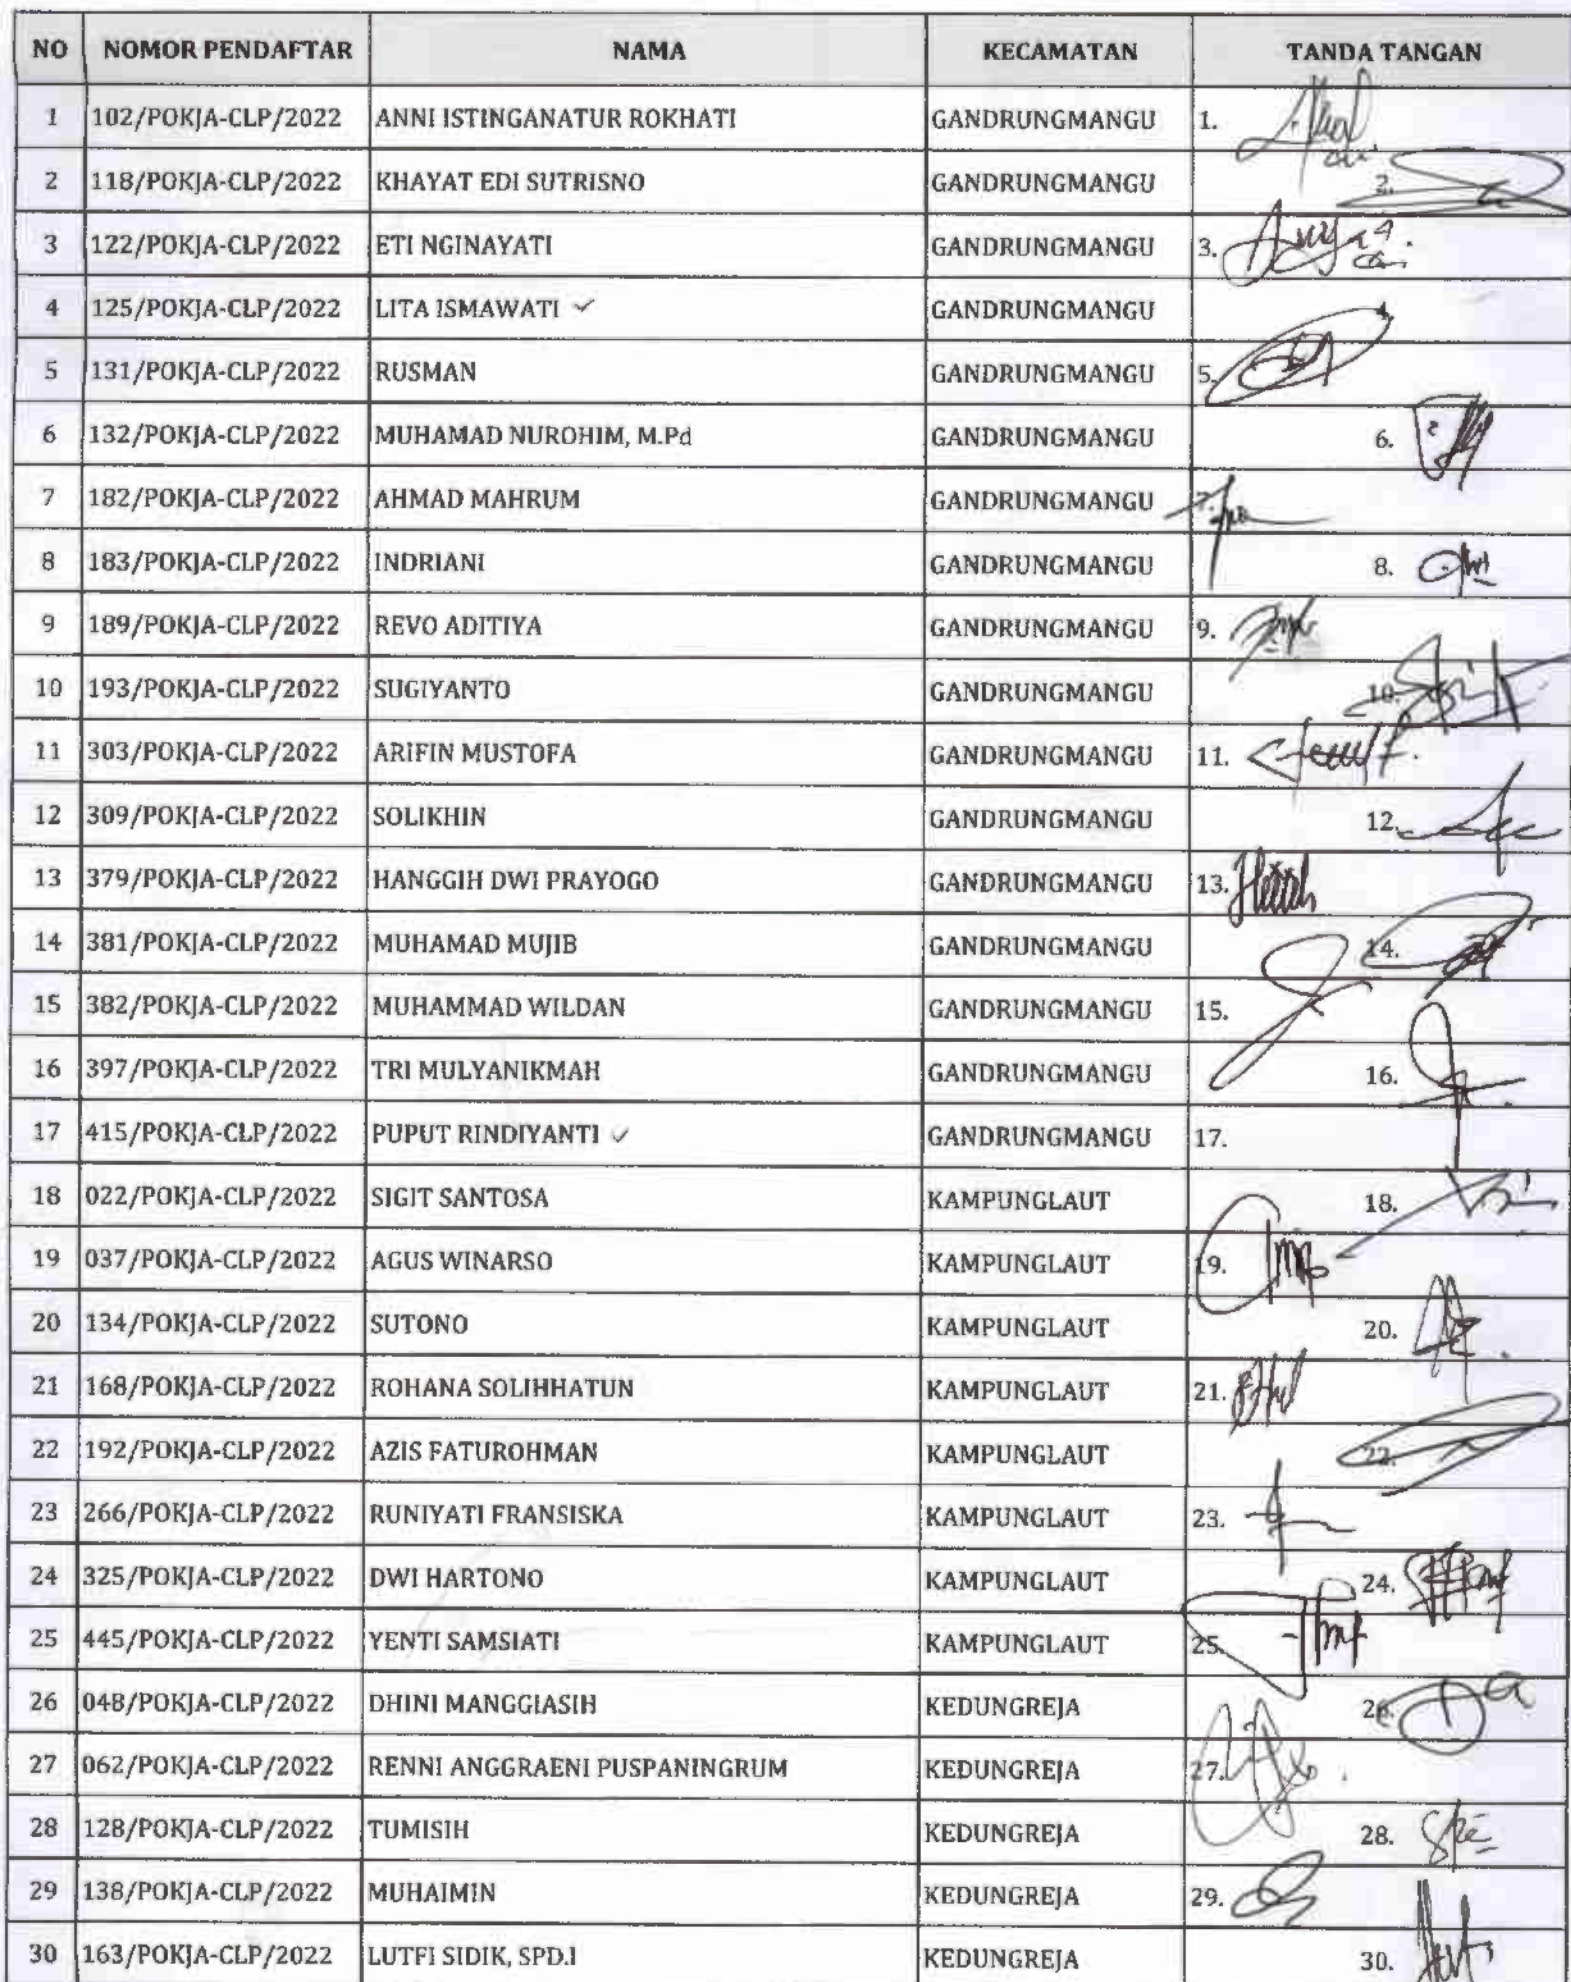 NO NOMOR PENDAFTAR NAMA KECAMATAN TANDA TANGAN
1 102/POKJA-CLP/2022 ANNI ISTINGANATUR ROKHATI GANDRUNGMANGU 1.
2 118/POKJA-CLP/2022 KHAYAT EDI SUTRISNO GANDRUNGMANGU 2.
3 122/POKJA-CLP/2022 ETI NGINAYATI GANDRUNGMANGU 3.
4 125/POKJA-CLP/2022 LITA ISMAWATI GANDRUNGMANGU 4.
5 131/POKJA-CLP/2022 RUSMAN GANDRUNGMANGU 5.
6 132/POKJA-CLP/2022 MUHAMAD NUROHIM, M.Pd GANDRUNGMANGU 6.
7 182/POKJA-CLP/2022 AHMAD MAHRUM GANDRUNGMANGU 7.
8 183/POKJA-CLP/2022 INDRIANI GANDRUNGMANGU 8.
9 189/POKJA-CLP/2022 REVO ADITIYA GANDRUNGMANGU 9.
10 193/POKJA-CLP/2022 SUGIYANTO GANDRUNGMANGU 10.
11 303/POKJA-CLP/2022 ARIFIN MUSTOFA GANDRUNGMANGU 11.
12 309/POKJA-CLP/2022 SOLIKHIN GANDRUNGMANGU 12.
13 379/POKJA-CLP/2022 HANGGIH DWI PRAYOGO GANDRUNGMANGU 13.
14 381/POKJA-CLP/2022 MUHAMAD MUJIB GANDRUNGMANGU 14.
15 382/POKJA-CLP/2022 MUHAMMAD WILDAN GANDRUNGMANGU 15.
16 397/POKJA-CLP/2022 TRI MULYANIKMAH GANDRUNGMANGU 16.
17 415/POKJA-CLP/2022 PUPUT RINDIYANTI GANDRUNGMANGU 17.
18 022/POKJA-CLP/2022 SIGIT SANTOSA KAMPUNGLAUT 18.
19 037/POKJA-CLP/2022 AGUS WINARSO KAMPUNGLAUT 19.
20 134/POKJA-CLP/2022 SUTONO KAMPUNGLAUT 20.
21 168/POKJA-CLP/2022 ROHANA SOLIHHATUN KAMPUNGLAUT 21.
22 192/POKJA-CLP/2022 AZIS FATUROHMAN KAMPUNGLAUT 22.
23 266/POKJA-CLP/2022 RUNIYATI FRANSISKA KAMPUNGLAUT 23.
24 325/POKJA-CLP/2022 DWI HARTONO KAMPUNGLAUT 24.
25 445/POKJA-CLP/2022 YENTI SAMSIATI KAMPUNGLAUT 25.
26 048/POKJA-CLP/2022 DHINI MANGGIASIH KEDUNGREJA 26.
27 062/POKJA-CLP/2022 RENNI ANGGRAENI PUSPANINGRUM KEDUNGREJA 27.
28 128/POKJA-CLP/2022 TUMISIH KEDUNGREJA 28.
29 138/POKJA-CLP/2022 MUHAIMIN KEDUNGREJA 29.
30 163/POKJA-CLP/2022 LUTFI SIDIK, SPD.I KEDUNGREJA 30.